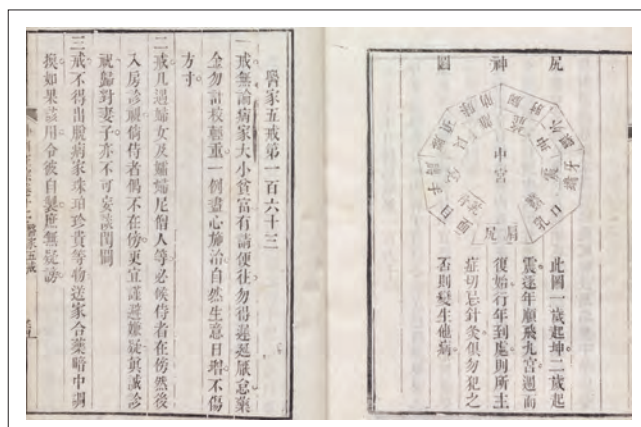 尻神圖
中宮
坤
此圖一歲起坤二歲起
震逐年順飛九宮週而
復始行年到處則所主
症切忌針灸俱勿犯之
否則變生他病
醫家五戒第一百六十三
一戒無論病家大小貧富有請便往勿得遲延厭怠藥
金勿計校輕重一例盡心施治自然生意日增不傷
方寸
二戒凡遇婦女及孀婦尼僧人等必候侍者在傍然後
入房診視倘侍者偶不在傍更宜謹避嫌疑眞誠診
視歸對妻子亦不可妄談閨閫
三戒不得出脫病家珠珀珍貴等物送家合藥暗中調
換如果該用令彼自製庶無疑謗